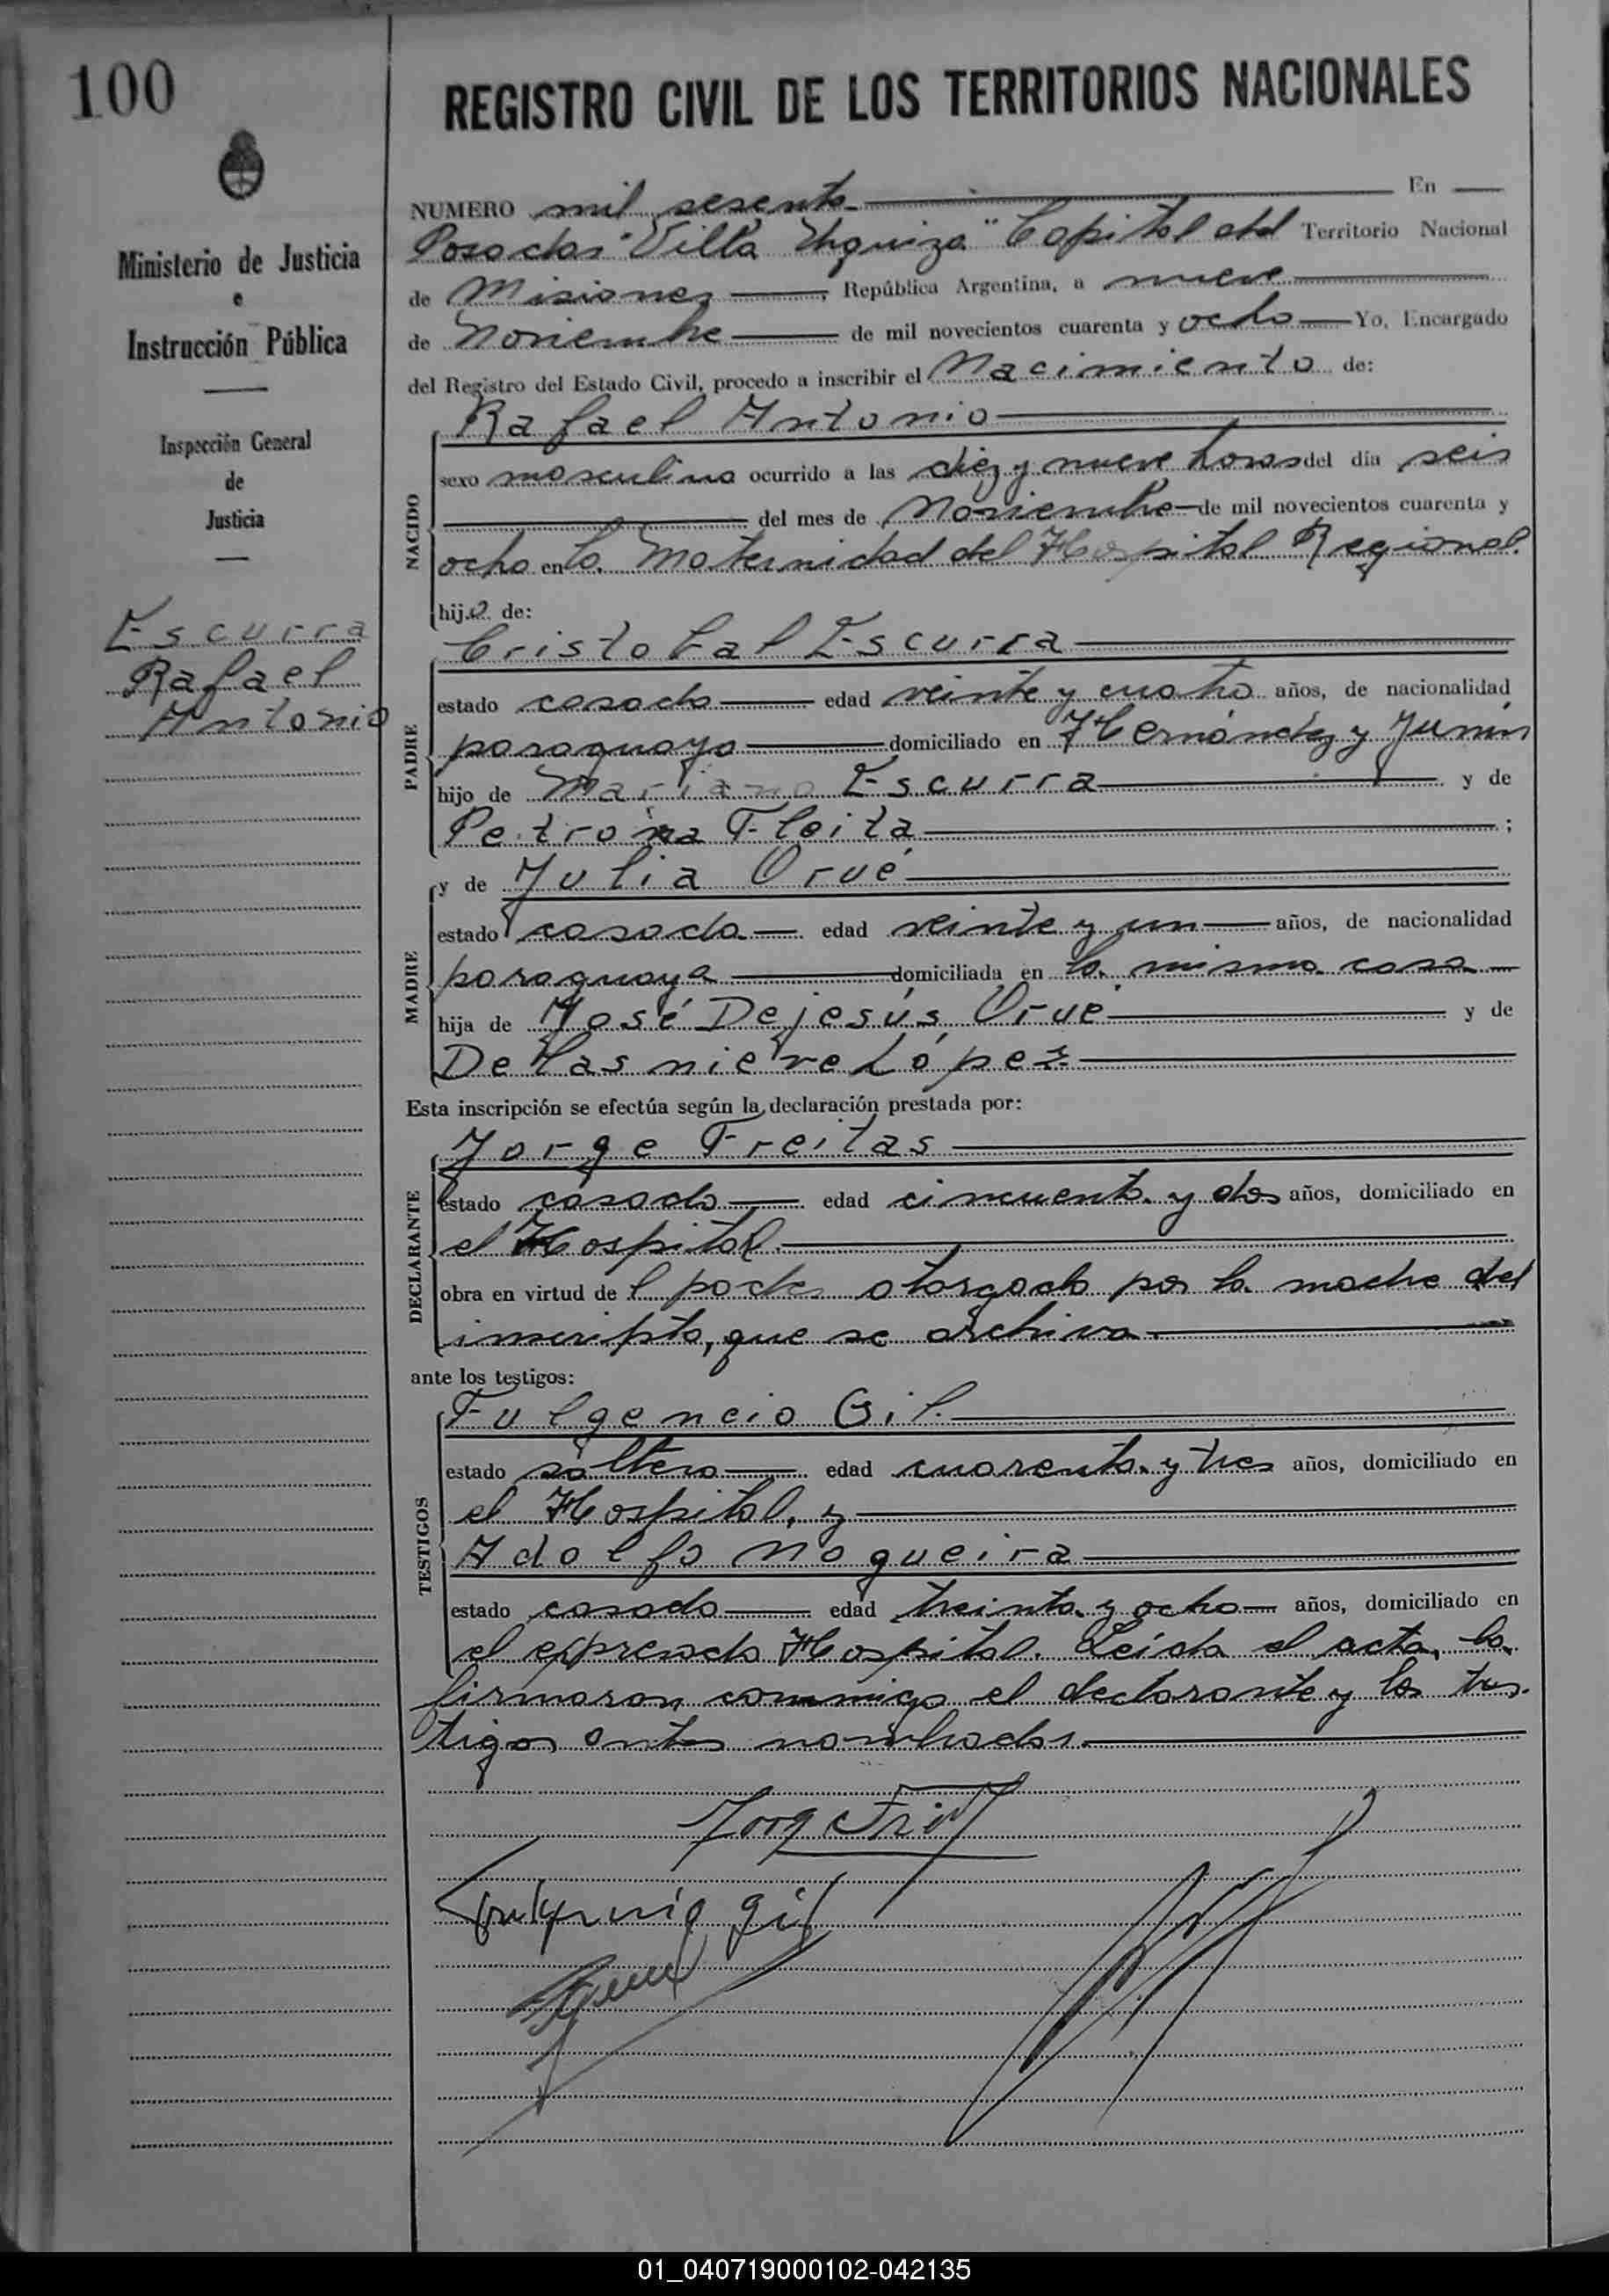 100
REGISTRO CIVIL DE LOS TERRITORIOS NACIONALES
Ministerio de Justicia
e
Instrucción Pública
Inspección General
de
Justicia
Escurra
Rafael
Antonio
NUMERO mil sesenta En
Posadas "Villa Urquiza" Capital del Territorio Nacional
de Misiones, República Argentina, a nueve
de Noviembre de mil novecientos cuarenta y ocho Yo, Encargado
del Registro del Estado Civil, procedo a inscribir el Nacimiento de:
NACIDO
Rafael Antonio
sexo masculino ocurrido a las diez y nueve horas del día seis
del mes de Noviembre de mil novecientos cuarenta y
ocho en la Maternidad del Hospital Regional.
hijo de:
PADRE
Cristobal Escurra
estado casado edad veinte y cuatro años, de nacionalidad
paraguaya domiciliado en Hernández y Junín
hijo de Mariano Escurra y de
Petrona Fleita ;
MADRE
y de Julia Orué
estado casada edad veinte y un años, de nacionalidad
paraguaya domiciliada en la misma casa
hija de José Dejesús Orué y de
De las nieve López
Esta inscripción se efectúa según la declaración prestada por:
DECLARANTE
Jorge Freitas
estado casado edad cincuenta y dos años, domiciliado en
el Hospital.
obra en virtud de l poder otorgado por la madre del
inscripto, que se archiva.
ante los testigos:
TESTIGOS
Fulgencio Gil.
estado soltero edad cuarenta y tres años, domiciliado en
el Hospital, y
Adolfo Nogueira
estado casado edad treinta y ocho años, domiciliado en
el expresado Hospital. Leída el acta, la
firmaron conmigo el declarante y los tes-
tigos antes nombrados.
Fulgencio Gil
01_040719000102-042135